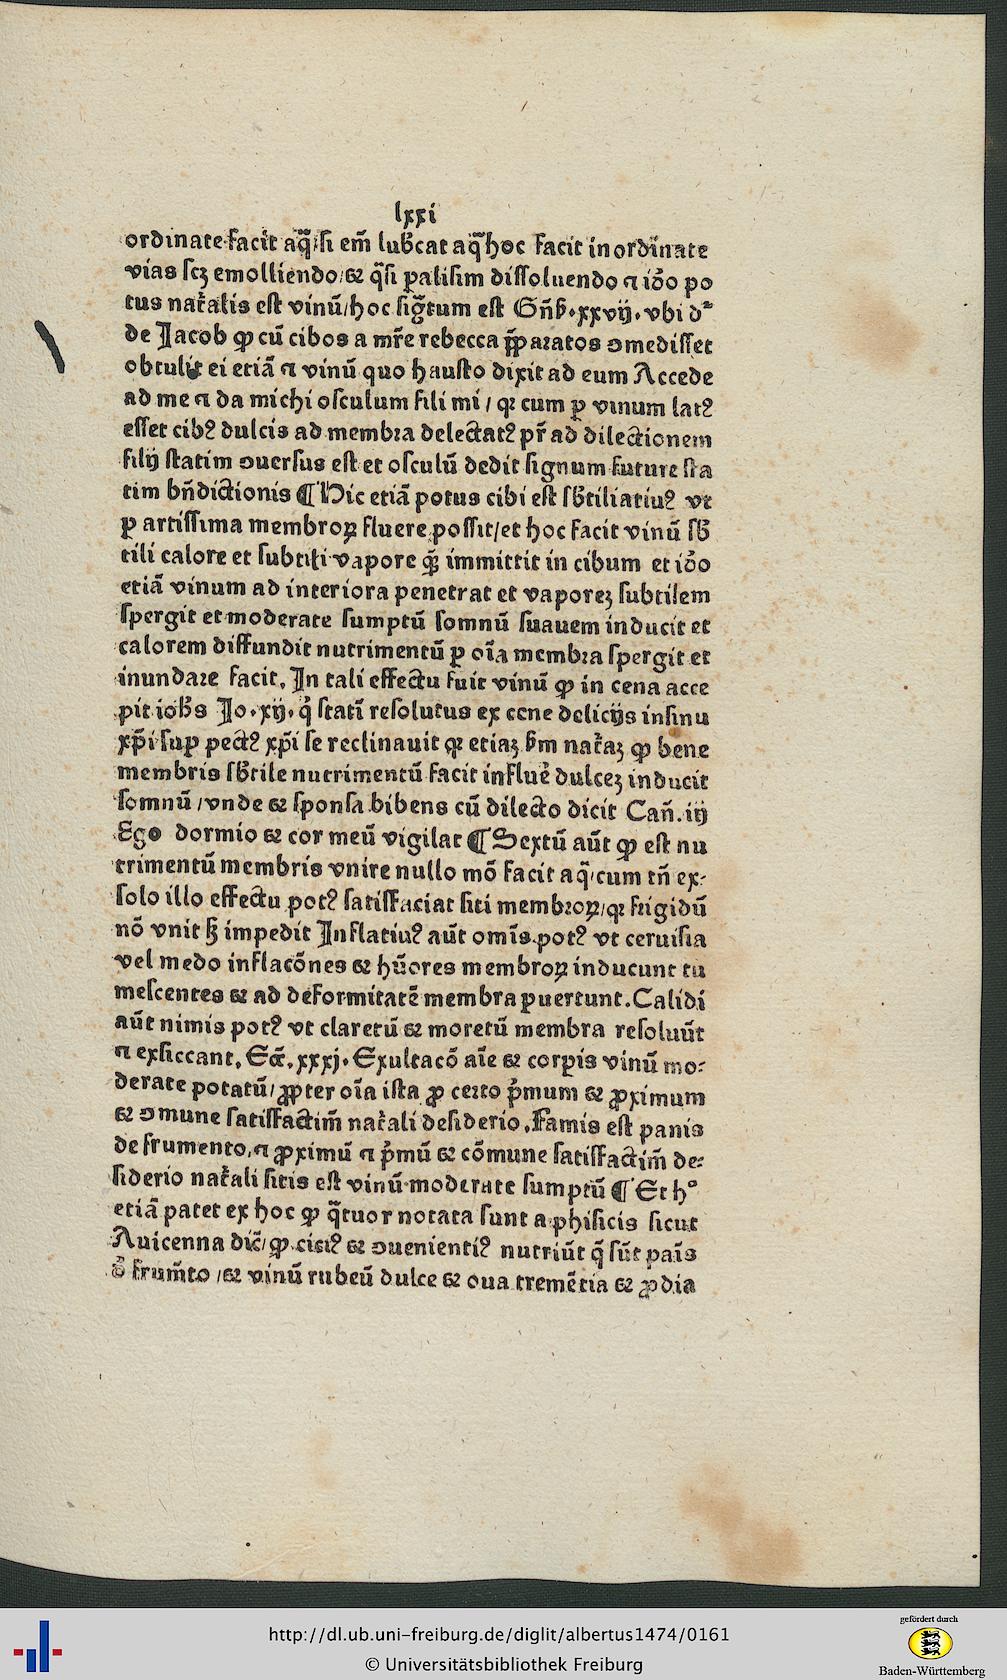 lxxi
ordinate facit aq̃/si em̄ lub̃cat aq̃ hoc facit inordinate
vias scꝫ emolliendo/⁊ q̃si ꝑalisim dissoluendo ⁊ iõo po
tus nat̃alis est vinū/hoc sigᷓtum est Gñẽ.xxvij.vbi dꝛ
de Jacob ꝙ cū cibos a mr̃e rebecca p̄ꝑaratos ꝯmedisset
obtulit ei etiā ⁊ vinū quo hausto dixit ad eum Accede
ad me ⁊ da michi osculum fili mi / qꝛ cum ꝑ vinum latꝰ
esset cibꝰ dulcis ad membra delectatꝰ pr̃ ad dilectionem
filij statim ꝯuersus est et osculū dedit signum future sta
tim bñdictionis ¶ Hic etiā potus cibi est sb̃tiliatiuꝰ vt
ꝑ artissima membroꝝ fluere possit/et hoc facit vinū sb̃
tili calore et subtili vapore qᷓꝫ immittit in cibum et iõo
etiā vinum ad interiora penetrat et vaporeꝫ subtilem
spergit et moderate sumptū somnū suauem inducit et
calorem diffundit nutrimentū ꝑ oīa membra spergit et
inundare facit. In tali effectu fuit vinū ꝙ in cena acce
pit ioh̃s Jo.xij.q̇ statī resolutus ex cene delicijs insinu
xp̄i suꝑ pectꝰ xp̄i se reclinauit qꝛ etiaꝫ b̃m nat̃aꝫ ꝙ bene
membris sb̃tile nutrimentū facit influē dulceꝫ inducit
somnū /vnde ⁊ sponsa bibens cū dilecto dicit Cañ.iij
Ego dormio ⁊ cor meū vigilat ¶ Sextū aūt ꝙ est nu
trimentū membris vnire nullo mō facit aq̃/cum tñ ex⸗
solo illo effectu potꝰ satisfaciat siti membroꝝ/qꝛ frigidū
nō vnit sꝫ impedit Inflatiuꝰ aūt omīs potꝰ vt ceruisia
vel medo inflacōnes ⁊ hūores membroꝝ inducunt tu
mescentes ⁊ ad deformitatē membra ꝑuertunt. Calidi
aūt nimis potꝰ vt claretū ⁊ moretū membra resoluūt
⁊ exsiccant. Ecc̄.xxxj. Exultacō aīe ⁊ corꝑis vinū mo⸗
derate potatū/ ꝓpter oīa ista ꝓ certo p̃mum ⁊ ꝓximum
⁊ ꝯmune satisfactim̄ nat̃ali desiderio. Famis est panis
de frumento.⁊ ꝓximū ⁊ p̃mū ⁊ cōmune satisfactim̄ de⸗
siderio nat̃ali sitis est vinū moderate sumptū ¶ Et hº
etiā patet ex hoc ꝙ qᷓtuor notata sunt a phisicis sicut
Auicenna dic̄/ꝙ citiꝰ ⁊ ꝯuenientiꝰ nutriūt q̃ sūt pāis
õ frum̄to /⁊ vinū rubeū dulce ⁊ oua tremētia ⁊ ꝓdia
http://dl.ub.uni-freiburg.de/diglit/albertus1474/0161
© Universitätsbibliothek Freiburg
gefördert durch
Baden-Württemberg